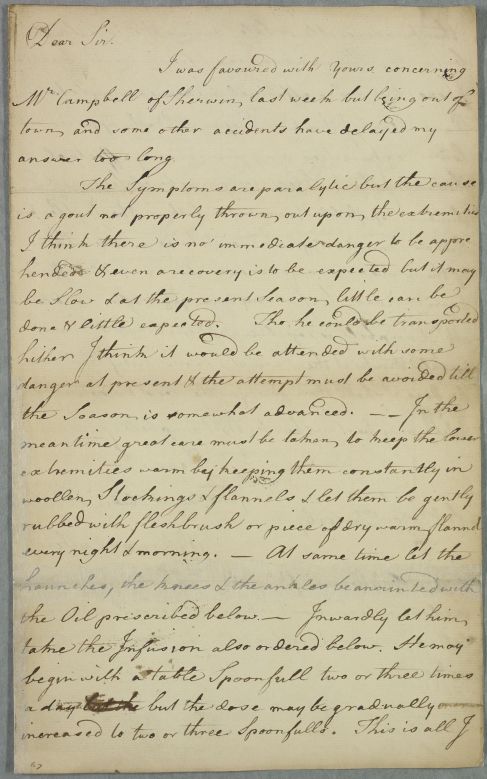 Dear Sir.
I was favoured with Yours concerning
Mr. Campbell of Sherwin, last week but being out of
town, and some other accidents have delayed my
answer too long
The Symptoms are paralytic but the cause
is a gout not properly thrown, out upon, the extremities
I think there is no immediate danger to be appre
hended & even a recovery is to be expected but it may
be slow & at the present Season, little can be
done & little expected. Tho he could be transported
hither I think it would be attended with some
danger at present & the attempt must be avoided till
the Season, is somewhat advanced. — — In the
meantime great care must be taken, to keep the lower
extremities warm by keeping them constantly in
woollen, Stockings & flannels & let them be gently
rubbed with fleshbrush or piece of dry warm flannel
every night & morning. — At same time let the
haunches, the knees & the ankles be anointed with
the Oil priscribed below. — Inwardly let him,
take the Infusion also ordered below. He may
begin with a table Spoonfull two or three times
a day but the but the dose may be gradually
increased to two or three Spoonfulls. This is all I